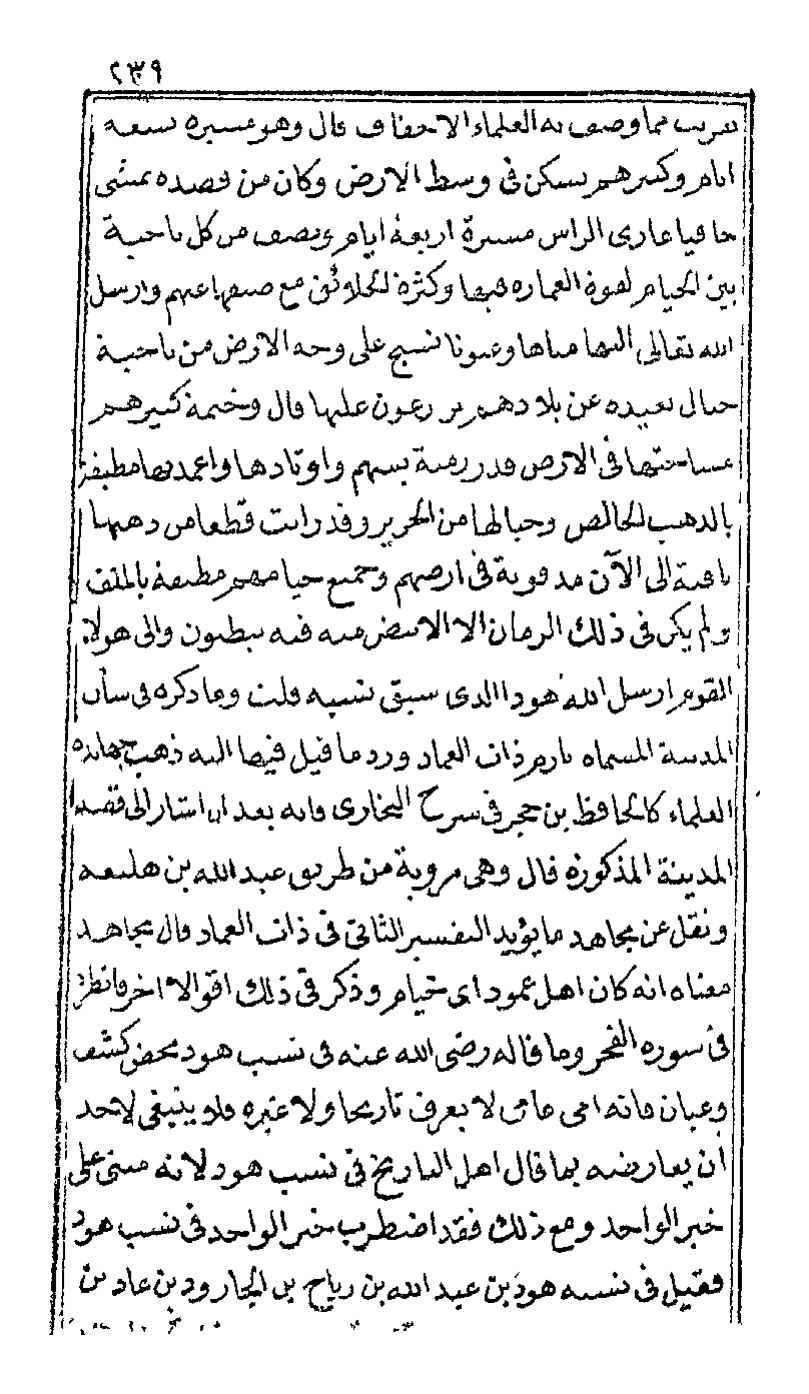 ٢٣٩
قريب مما وصف به العلماء الاحقاف قال وهو مسيرة تسعة
ايام وكبيرهم يسكن في وسط الارض وكان من قصده يمشى
حافيا عارى الراس مسيرة اربعة ايام ونصف من كل ناحية
بين الخيام لقوة العمارة فيها وكثرة الخلائق مع ضيقها عنهم وارسل
الله تعالى اليها مياها وعيونا تسيح على وجه الارض من ناحية
جبال بعيدة عن بلادهم يزرعون عليها قال وخيمة كبيرهم
مساحتها في الارض قدر رمية بسهم واوتادها واعمدتها مطبقة
بالذهب الخالص وحبالها من الحرير وقد رايت قطعا من ذهبها
باقية الى الآن مدفونة في ارضهم وجميع خيامهم مطبقة
ولم يكن في ذلك الزمان الا الابيض منه فيه يبطنون والى هولاء
القوم ارسل الله هودا الذى سبق نسبه قلت وما ذكره في شان
المدينة المسماه بارم ذات العماد ورد ما قيل فيها اليه ذهب جهابذة
العلماء كالحافظ بن حجر في شرح البخارى فانه بعد ان اشار الى قصة
المدينة المذكورة قال وهى مروية من طريق عبد الله بن هليعه
ونقل عن مجاهد ما يؤيد التفسير الثانى في ذات العماد قال مجاهد
معناه انه كان اهل عمود اى خيام وذكر في ذلك اقوالا اخر فانظره
في سوره الفجر وما قاله رضى الله عنه في نسب هود محض كشف
وعيان فانه امى عامى لا يعرف تاريخا ولا غيره فلا ينبغى لاحد
ان يعارضه بما قال اهل التاريخ في نسب هود لانه مبنى على
خبر الواحد ومع ذلك فقد اضطرب خبر الواحد في نسب هود
فقيل في نسبه هود بن عبد الله بن رباح بن الجارود بن عاد بن